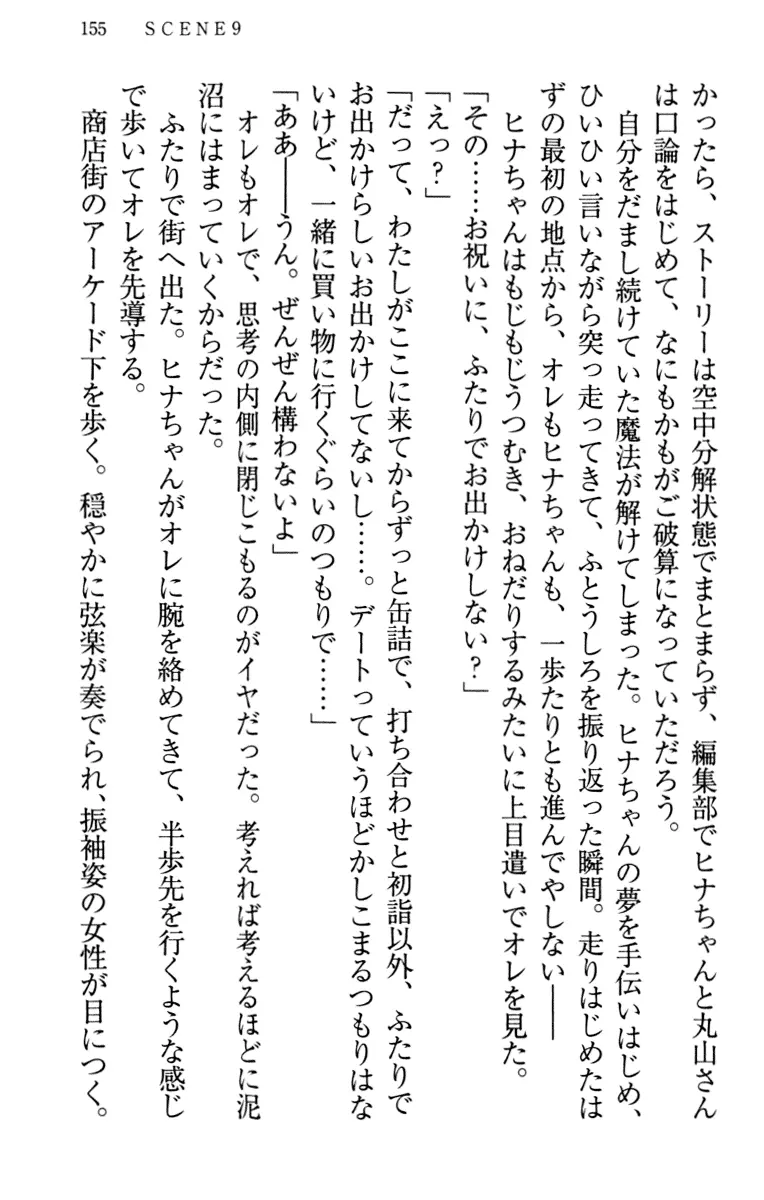 155 SCENE9
かったら、ストーリーは空中分解状態でまとまらず、編集部でヒナちゃんと丸山さん
は口論をはじめて、なにもかもがご破算になっていただろう。
自分をだまし続けていた魔法が解けてしまった。ヒナちゃんの夢を手伝いはじめ、
ひいひい言いながら突っ走ってきて、ふとうしろを振り返った瞬間。走りはじめたは
ずの最初の地点から、オレもヒナちゃんも、一歩たりとも進んでやしない――
ヒナちゃんはもじもじうつむき、おねだりするみたいに上目遣いでオレを見た。
「その……お祝いに、ふたりでお出かけしない？」
「えっ？」
「だって、わたしがここに来てからずっと缶詰で、打ち合わせと初詣以外、ふたりで
お出かけらしいお出かけしてないし……。デートっていうほどかしこまるつもりはな
いけど、一緒に買い物に行くぐらいのつもりで……」
「ああ――うん。ぜんぜん構わないよ」
オレもオレで、思考の内側に閉じこもるのがイヤだった。考えれば考えるほどに泥
沼にはまっていくからだった。
ふたりで街へ出た。ヒナちゃんがオレに腕を絡めてきて、半歩先を行くような感じ
で歩いてオレを先導する。
商店街のアーケード下を歩く。穏やかに弦楽が奏でられ、振袖姿の女性が目につく。